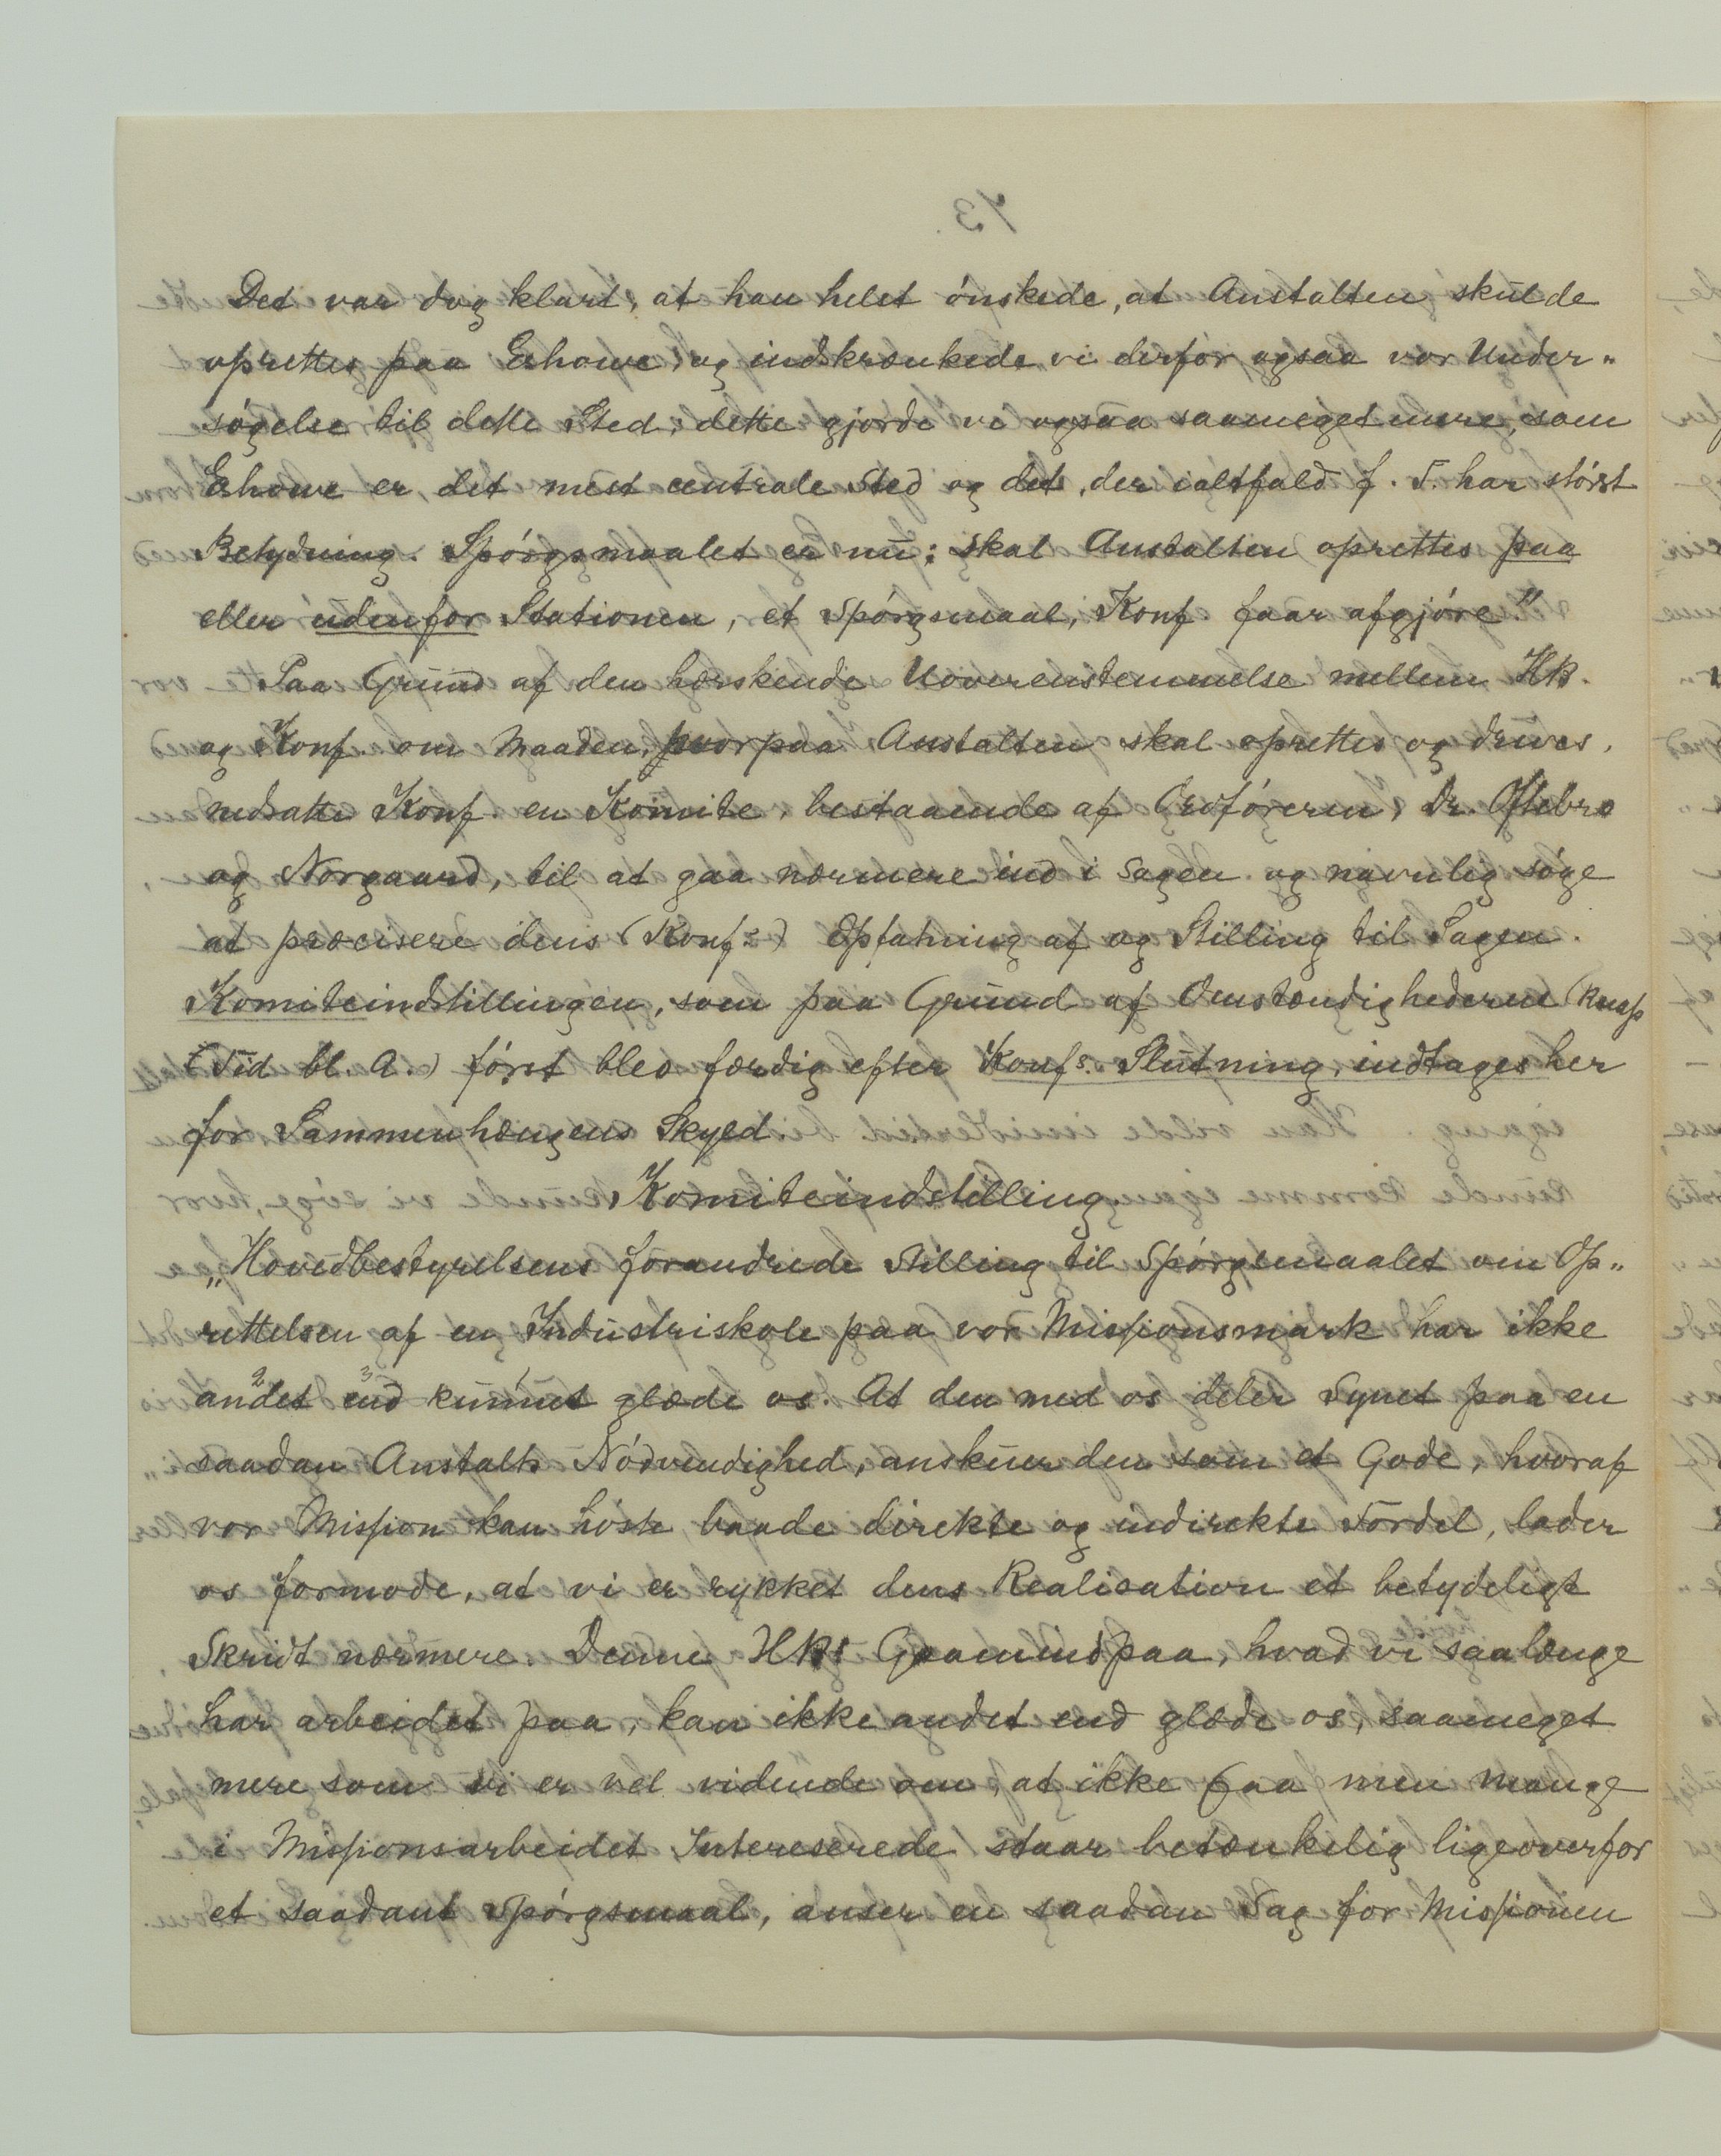 Det var dog klart, at han helst ónskede, at Anstalten skulde
oprettes paa Eshowe, og indskrænkede vi derfor ogsaa vor Under„
søgelse til dette Sted; dette gjorde vi ogsaa saameget mere, som
Eshowe er det mest centrale Sted og det, der ialtfald f. T. har störst
Betydning. Spörgsmaalet er nu: skal Anstalten oprettes paa
eller udenfor Stationen, et Spörgsmaal, Konf faar afgjöre."
Paa Grund af den herskende Uoverenstemmelse mellem HB.
og Konf. om Maaden, hvorpaa Anstalten skal oprettes og drives,
nedsatte Konf. en Komite, bestaaende af Ordföreren, Dr. Oftebro
og Norgaard, til at gaa nærmere ind i Sagen og navnlig söge
at præcisere dens (Konfs) Opfatning af og Stilling til Sagen.
Komiteindstillingen, som paa Grund af Omstændighederne (knap
Tid bl. A.) först blev færdig efter Konfs. Slutning, indtages her
for Sammenhængens Skyld.
Komiteindstilling.
„Hovedbestyrelsens forandrede Stilling til Spörgsmaalet om Op„
rettelsen af en Industriskole paa vor Missionsmark har ikke
andet 2 end 3 kunnet 1 glæde os. At den med os deler Synet paa en
saadan Anstalts Nödvendighed, anskuer den som et Gode, hvoraf
vor Mission kan höste baade direkte og indirekte Fordel, lader
os formode, at vi er rykket dens Realisation et betydeligt
Skridt nærmere. Denne HBs Gaaen ind paa, hvad vi saalænge
har arbeidet paa, kan ikke andet end glæde os, saameget
mere som vi er vel vidende om, at ikke faa men mange
i Missionsarbeidet Intereserede staar betænkelig ligeoverfor
et saadant Spörgsmaal, anser en saadan Sag for Missionen